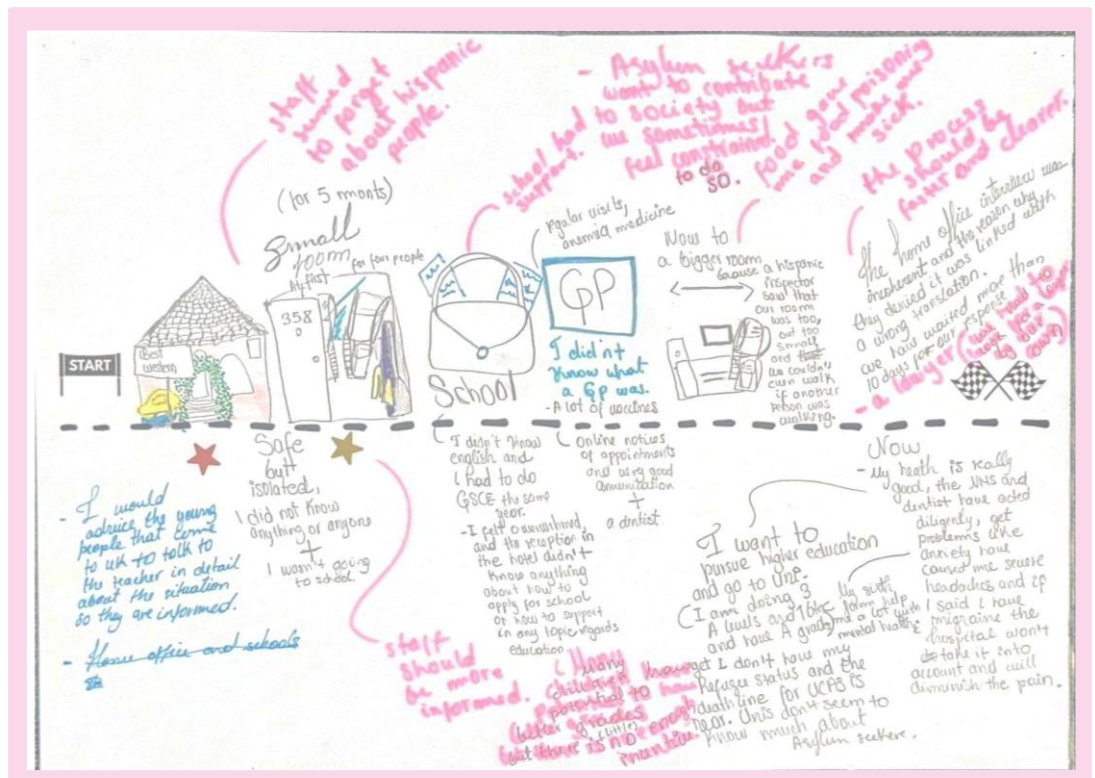 staff
seemed
to forget
about hispanic
people.
- Asylum seekers
want to contribute
to society but
we sometimes
feel constrained
to do
so.
school had to
support.
food gave
me food poisoning
and made me
sick.
the process
should be
faster and clearer.
(for 5 monts)
Small
room
My first
for four people
358
regular visits,
anemia, medicine
GP
I didn't
know what
a Gp was.
- A lot of vaccines
Now to
a bigger room
because a hispanic
inspector
saw that
our room
was too,
out too
small
and that
we couldn't
even walk
if another
person was
walking.
the home office interview was
incoherent and the reason why
they denied it was linked with
a wrong translation.
we have waited more than
10 days for our response
- a lawyer (we had to
look for a lawyer
by our
own)
START
Best
western
School
Safe
but
isolated,
I did not know
anything or anyone
+
I wasn't going
to school.
- I would
advice the young
people that come
to UK to talk to
the teacher in detail
about the situation
so they are informed.
- Home office and schools
staff
should
be more
informed.
- I didn't know
english and
I had to do
GSCE the same
year.
- I felt overwhelmed,
and the reception in
the hotel didn't
know anything
about how to
apply for school
or how to support
in any topic regards
education
(Many
children have
potential to have
better grades
but there is no enough
(little)
incentive.
Online notices
of appointments
and very good
comunication
+
a dentist
I want to
pursue higher education
and go to Uni.
(I am doing 3
A levels and 1 btec
and have A grades
yet I don't have my
Refugee status and the
deathline for UCAS is
near. Unis don't seem to
know much about
Asylum seekers.
My sixth
form help
me a lot with
mental health
Now
- My heath is really
good, the NHS and
dentist have acted
diligently, yet
problems like
anxiety have
caused me severe
headaches and if
I said I have
migraine the
hospital won't
take it into
account and will
diminish the pain.